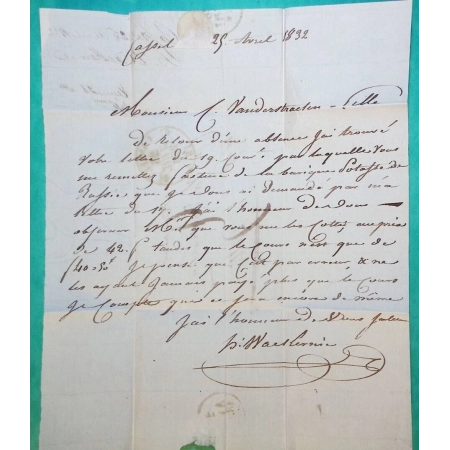 Cassel 25 Avril 1832
Monsieur C. Vanderstraeten - Lille
De Retour d'une absence J'ai trouvé
Votre lettre du 19. Cour. par laquelle vous
me remettez facture de la barique Potasse de
Russie que je vous ai demandé par ma
lettre du 17. J'ai l'honneur de vous
observer que vous me les Cottez au prix
de 42. f tandis que le Cours n'est que de
40 » 50 Je pense que C'est par erreur & ne
les ayant Jamais payé plus que le Cours
Je Compte que ce sera encore de même
J'ai l'honneur de Vous Saluer